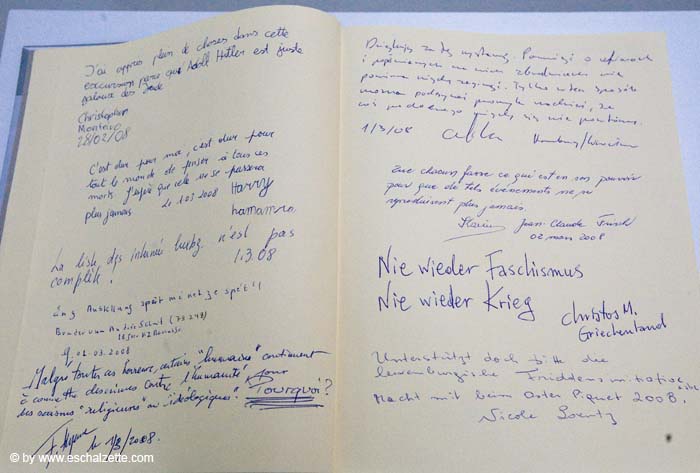 J'ai appris plus de choses dans cette
excursion parce que Adolf Hitler est juste
jaloux des Jude
Christopher
Monteiro
28/02/08
C'est dur pour moi, c'est dur pour
tout le monde de penser à tous ces
morts. J'espère que cela ne se passera
plus jamais. le 1.03.2008 Harry
La liste des internés n'est pas
complète! 1.3.08
Ausstellung spéit mä net ze spéit!!
02.03.2008
Malgré toutes ces horreurs, certains "humains" continuent
à commettre des crimes contre l'humanité pour
des raisons "religieuses" ou "idéologiques". Pourquoi?
le 1/3/2008.
Dziękuję za tę wystawę. Pamięć o ofiarach
i popełnionych na nich zbrodniach nie
powinna nigdy zaginąć. Tylko w ten sposób
można
coś podobnego nigdy się nie powtórzy.
1/3/08 Hamburg/
Que chacun fasse ce qui est en son pouvoir
pour que de tels événements ne se
reproduisent plus jamais.
Jean-Claude
02 mars 2008
Nie wieder Faschismus
Nie wieder Krieg
Christos M.
Griechenland
Unterstützt doch bitte die
luxemburgische Friddensinitiative
Macht mit beim Oster Piquet 2008.
Nicole Lorentz
© by www.eschalzette.com